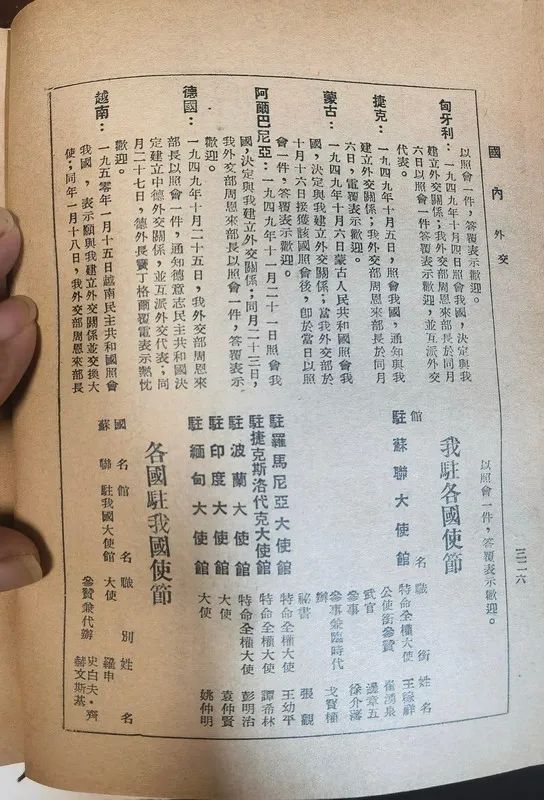 國內外交
三二六
以照會一件，答覆表示歡迎。
匈牙利：一九四九年十月四日照會我國，決定與我
建立外交關係；我外交部周恩來部長於同月
六日以照會一件答覆表示歡迎，並互派外交
代表。
捷克：一九四九年十月五日，照會我國，通知與我
建立外交關係；我外交部周恩來部長於同月
六日，電覆表示歡迎。
蒙古：一九四九年十月六日蒙古人民共和國照會我
國，決定與我建立外交關係；當我外交部於
十月十六日接獲該國照會後，即於當日以照
會一件，答覆表示歡迎。
阿爾巴尼亞：一九四九年十一月二十一日照會我
國，決定與我建立外交關係；同月二十三日，
我外交部周恩來部長以照會一件，答覆表示
歡迎。
德國：一九四九年十月二十五日，我外交部周恩來
部長以照會一件，通知德意志民主共和國決
定建立中德外交關係，並互派外交代表；同
月二十七日，德外長竇丁格爾覆電表示熱忱
歡迎。
越南：一九五零年一月十五日越南民主共和國照會
我國，表示願與我建立外交關係並交換大
使；同年一月十八日，我外交部周恩來部長
以照會一件，答覆表示歡迎。
我駐各國使節
館名 職銜 姓名
駐蘇聯大使館 特命全權大使 王稼祥
公使銜參贊
武官 邊章五
參事 徐介藩
參事兼臨時代辦 戈寶權
秘書 張觀
駐羅馬尼亞大使館 特命全權大使 王幼平
駐捷克斯洛代克大使館 特命全權大使 譚希林
駐波蘭大使館 特命全權大使 彭明治
駐印度大使館 大使 袁仲賢
駐緬甸大使館 大使 姚仲明
各國駐我國使節
國名 館名 職別 姓名
蘇聯 駐我國大使館 大使 羅申
參贊兼代辦 史白夫·齊赫文斯基